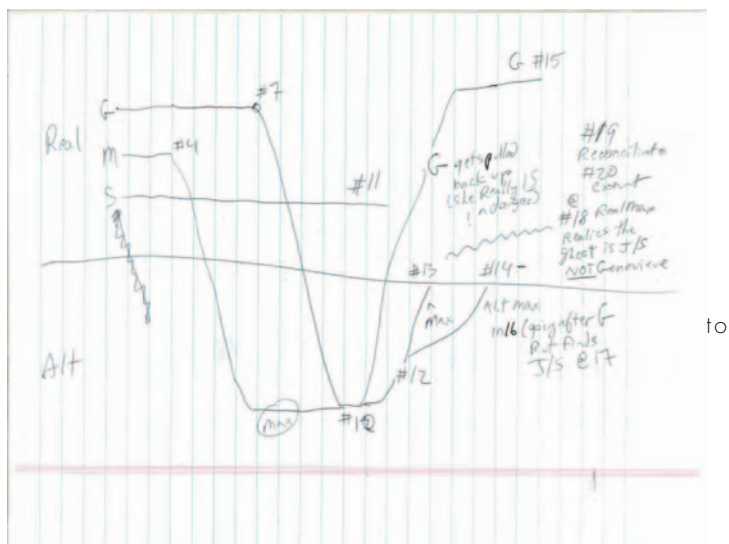 G #15
#7
G
Real
M
#4
S
#11
G gets pulled
back up
(she Really IS
in danger)
#19
#20
Exeunt
@
#18 Real max
Realizes the
ghost is J/S
NOT Genevieve
#13
#14
max
Alt max
in 16 (going after G
But finds
J/S @ 17
to
Alt
#12
max
#10